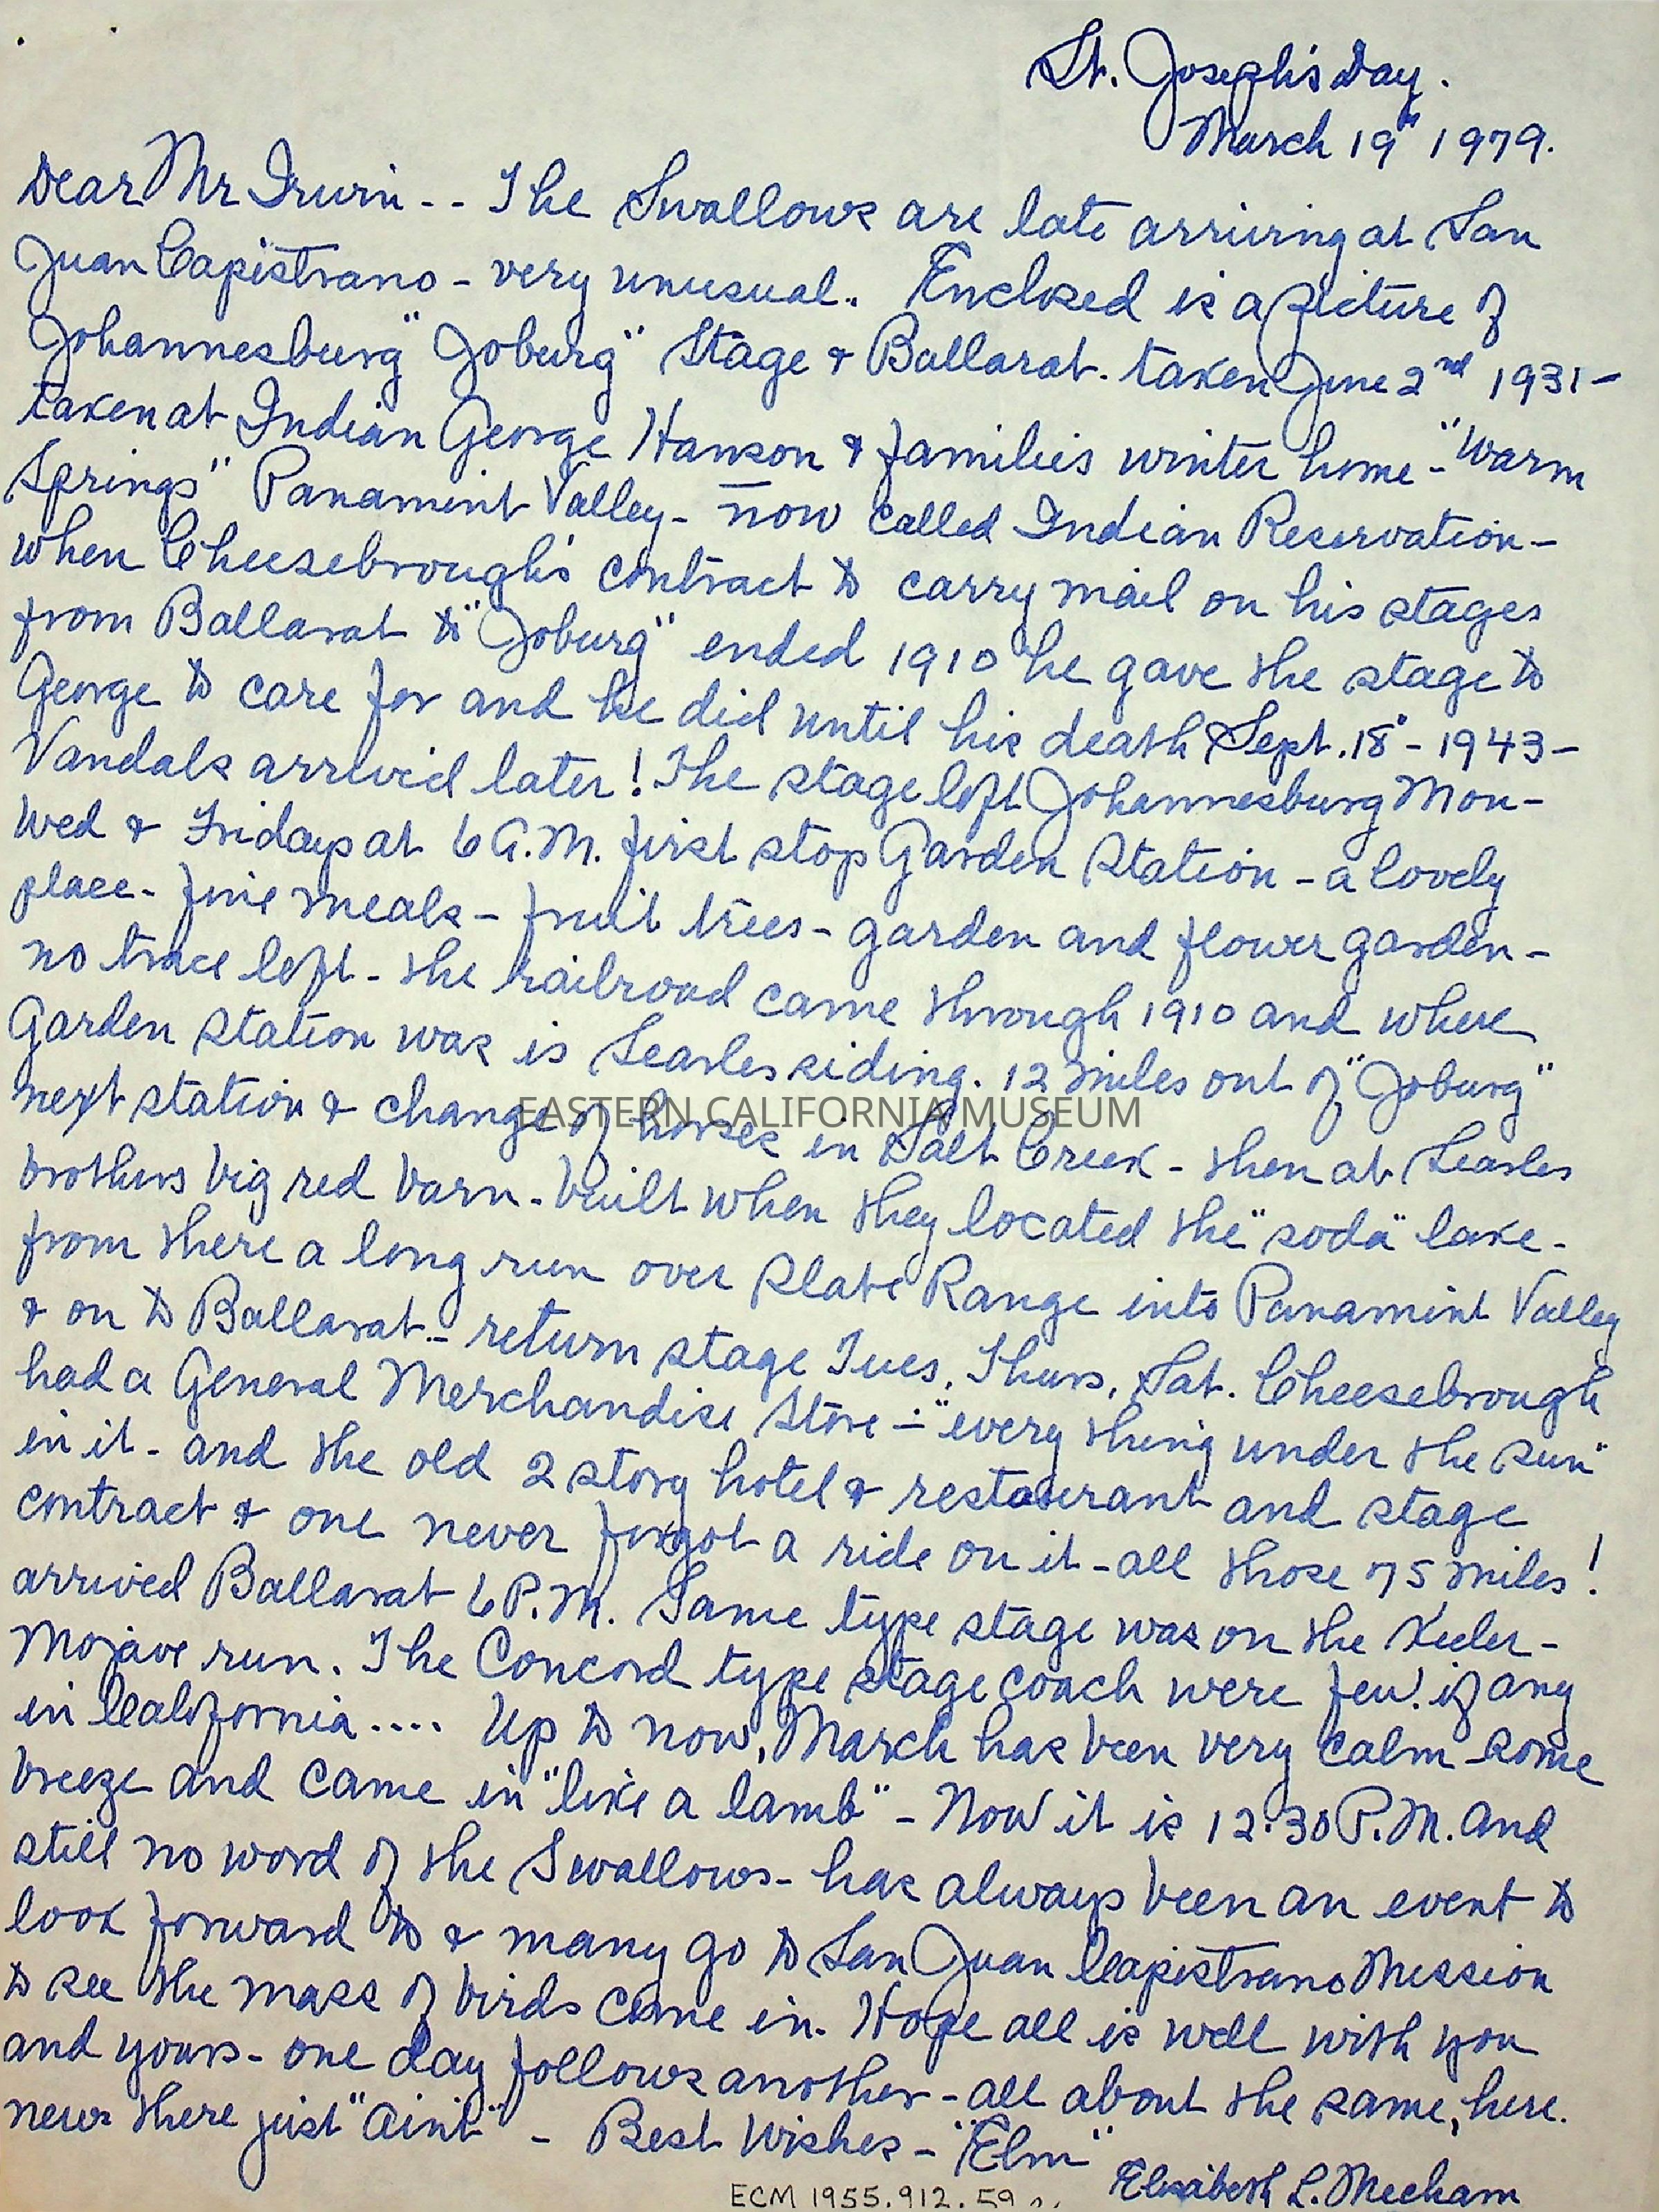 St. Joseph's Day.
March 19th 1979.
Dear Mr Irwin -- The Swallows are late arriving at San
Juan Capistrano - very unusual. Enclosed is a picture of
Johannesburg "Joburg" Stage & Ballarat. taken June 2nd 1931 -
taken at Indian George Hanson & families winter home - "Warm
Springs" Panamint Valley - now called Indian Reservation -
when Cheesebrough's contract to carry mail on his stages
from Ballarat to "Joburg" ended 1910 he gave the stage to
George to care for and he did until his death Sept. 18" - 1943 -
Vandals arrived later! The stage left Johannesburg Mon -
Wed & Fridays at 6 A.M. first stop Garden Station - a lovely
place - fine meals - fruit trees - garden and flower garden -
no trace left - the railroad came through 1910 and where
Garden station was is Searles siding. 12 miles out of "Joburg"
next station & change of horses in Salt Creek - then at Searles
brothers big red barn - built when they located the "soda" lake -
from there a long run over Slate Range into Panamint Valley
& on to Ballarat - return stage Tues, Thurs, Sat. Cheesebrough
had a General Merchandise Store - "every thing under the sun"
in it - and the old 2 story hotel & restaurant and stage
contract & one never forgot a ride on it - all those 75 miles!
arrived Ballarat 6 P.M. Same type stage was on the Keeler -
Mojave run. The Concord type stage coach were few if any
in California .... Up to now, March has been very calm - some
breeze and came in "like a lamb" - Now it is 12:30 P.M. and
still no word of the Swallows - has always been an event to
look forward to & many go to San Juan Capistrano Mission
to see the mass of birds come in. Hope all is well with you
and yours - one day follows another - all about the same, here.
news there just "aint" - Best Wishes - "Elm"
Elizabeth L. Mecham
EASTERN CALIFORNIA MUSEUM
ECM 1955.912.59